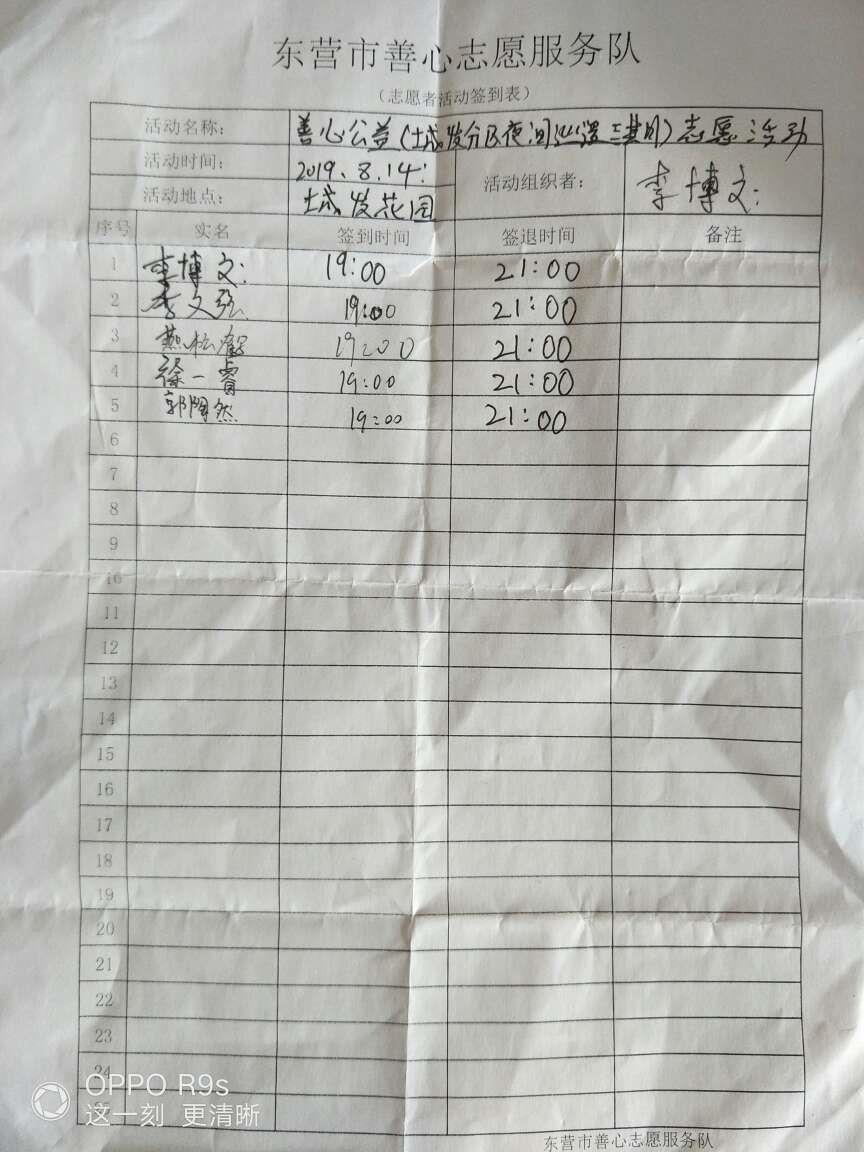 东营市善心志愿服务队
（志愿者活动签到表）
活动名称： 善心公益（城发分区夜间巡逻三共同）志愿活动
活动时间： 2019.8.14： 活动组织者： 李博文：
活动地点： 城发花园
序号 实名 签到时间 签退时间 备注
1 李博文： 19:00 21:00
2 李文强 19:00 21:00
3 燕松 19:00 21:00
4 徐一睿 19:00 21:00
5 郭陶然 19:00 21:00
6
7
8
9
10
11
12
13
14
15
16
17
18
19
20
21
22
23
24
东营市善心志愿服务队
OPPO R9s
这一刻 更清晰